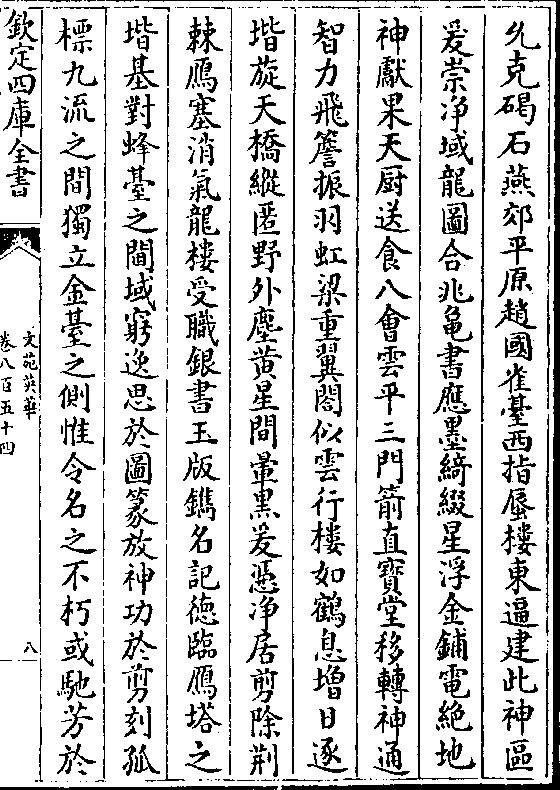 允克碣石燕郊平原趙國雀臺西指蜃樓東逼建此神區
爰崇净域龍圖合兆龜書應墨綺綴星浮金鋪電絶地
神獻果天厨送食八會雲平三門箭直寳堂移轉神通
智力飛簷振羽虹梁重翼閣似雲行樓如鶴息增日逐
堦旋天橋縱匿野外塵黄星間暈黒爰憑净居剪除荆
棘鴈塞消氣龍樓受職銀書玉版鐫名記德臨鴈塔之
堦基對蜂臺之閫域窮逸思於圖篆放神功於剪刻孤
標九流之間獨立金臺之側惟令名之不朽或馳芳於
欽定四庫全書
文苑英華
卷八百五十四
八